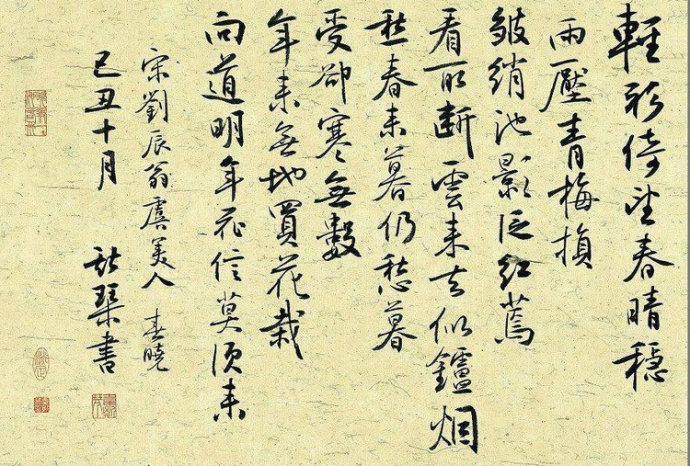 輕衫倚望春晴穩
雨壓青梅損
皺綃池影泛紅蔫
看取斷雲来去似鑪烟
愁春来暮仍愁暮
受卻寒無數
年来無地買花栽
向道明年花信莫須来
宋劉辰翁虞美人 春曉
己丑十月 琴書